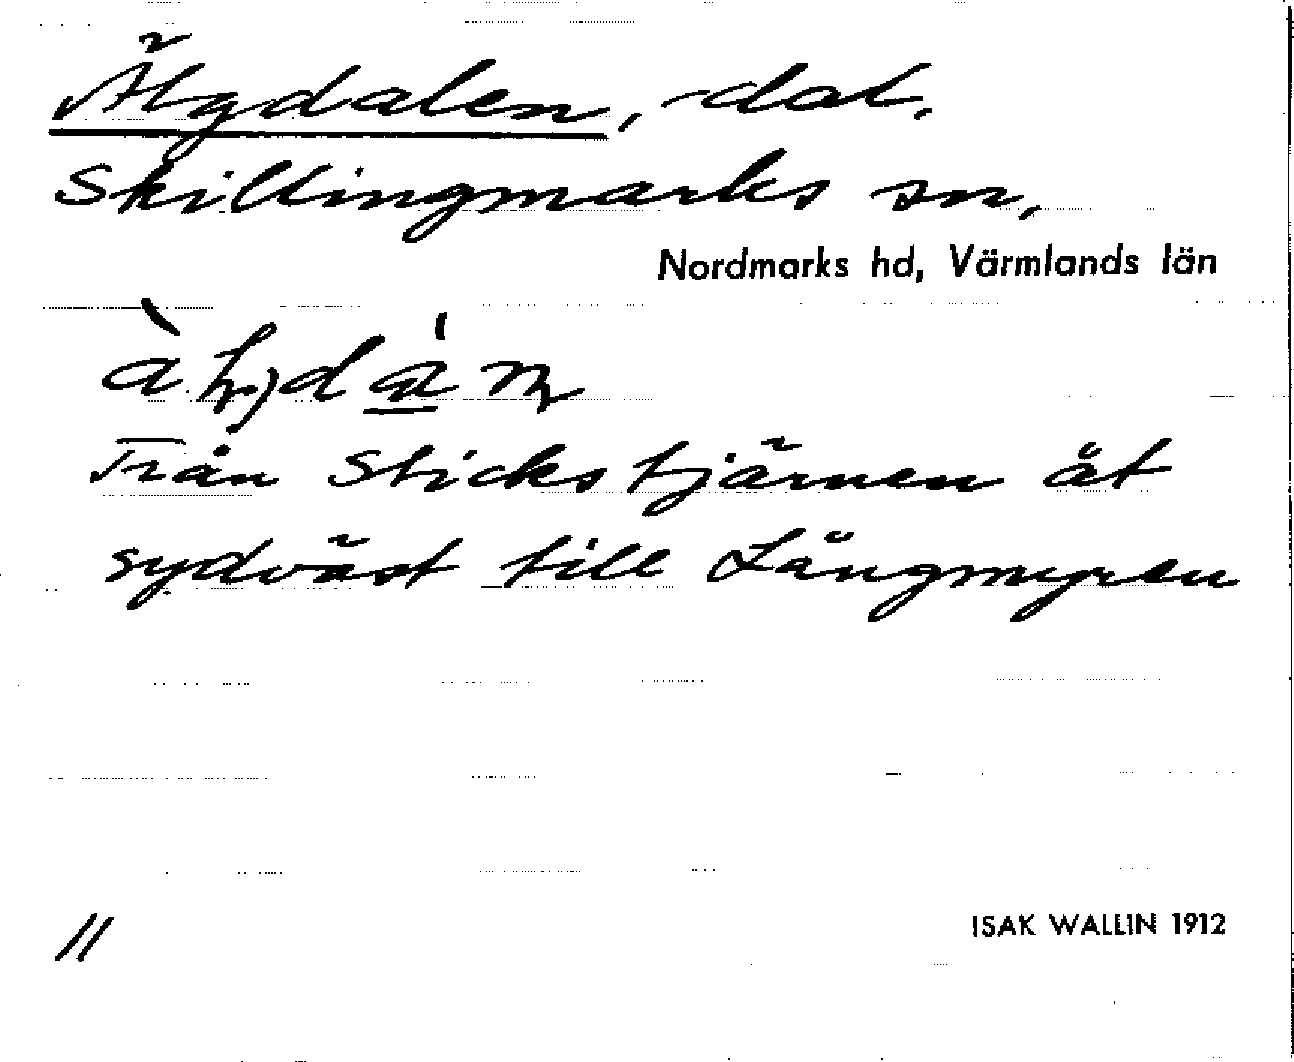 Älgdalen, -dal,
Skillingmarks sn,
Nordmarks hd, Värmlands län
Från Stickstjärnen åt
sydväst till Långmyren
11
ISAK WALLIN 1912